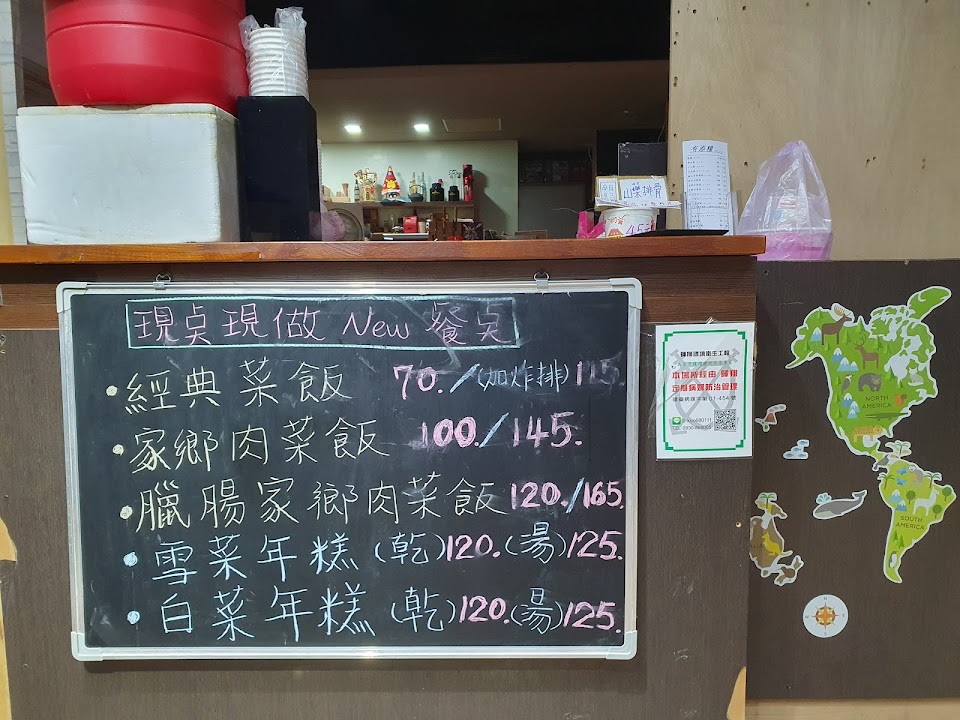 山藥排骨
45元
現桌現做 New 餐桌
•經典菜飯 70./(加炸排)115.
•家鄉肉菜飯 100./145.
•臘腸家鄉肉菜飯 120./165.
•雪菜年糕(乾)120.(湯)125.
•白菜年糕(乾)120.(湯)125.
定期病媒防治管理
NORTH
AMERICA
SOUTH
AMERICA